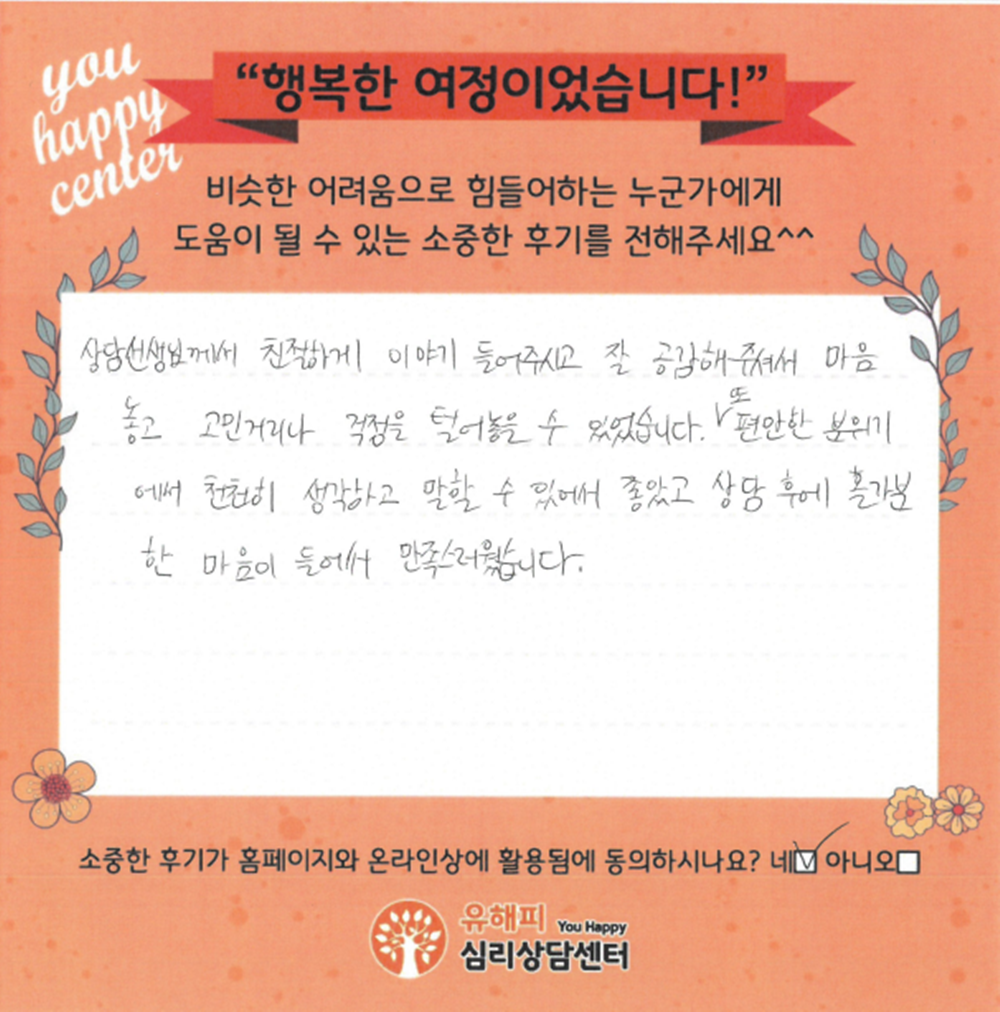 you
happy
center
“행복한 여정이었습니다!”
비슷한 어려움으로 힘들어하는 누군가에게
도움이 될 수 있는 소중한 후기를 전해주세요^^
상담선생님께서 친절하게 이야기 들어주시고 잘 공감해주셔서 마음
놓고 고민거리나 걱정을 털어놓을 수 있었습니다. 또 편안한 분위기
에서 천천히 생각하고 말할 수 있어서 좋았고 상담 후에 홀가분
한 마음이 들어서 만족스러웠습니다.
소중한 후기가 홈페이지와 온라인상에 활용됨에 동의하시나요? 네☑ 아니오☐
유해피 You Happy
심리상담센터